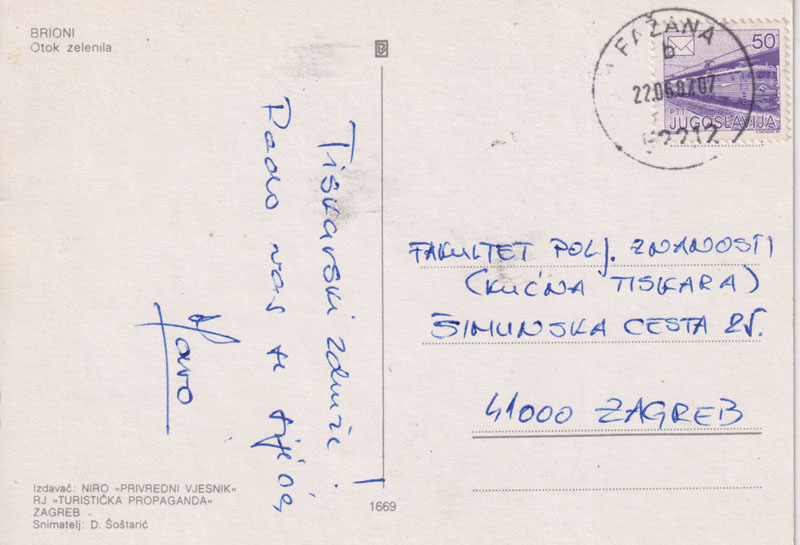 BRIONI
Otok zelenila
FAŽANA
b
22.06.87.07
52212
50
PTT
JUGOSLAVIJA
Tiskarski
Rado vas se sjeća,
FAKULTET POLJ. ZNANOSTI
(KUĆNA TISKARA)
ŠIMUNSKA CESTA 25.
41000 ZAGREB
Izdavač: NIRO »PRIVREDNI VJESNIK«
RJ »TURISTIČKA PROPAGANDA«
ZAGREB
Snimatelj: D. Šoštarić
1669